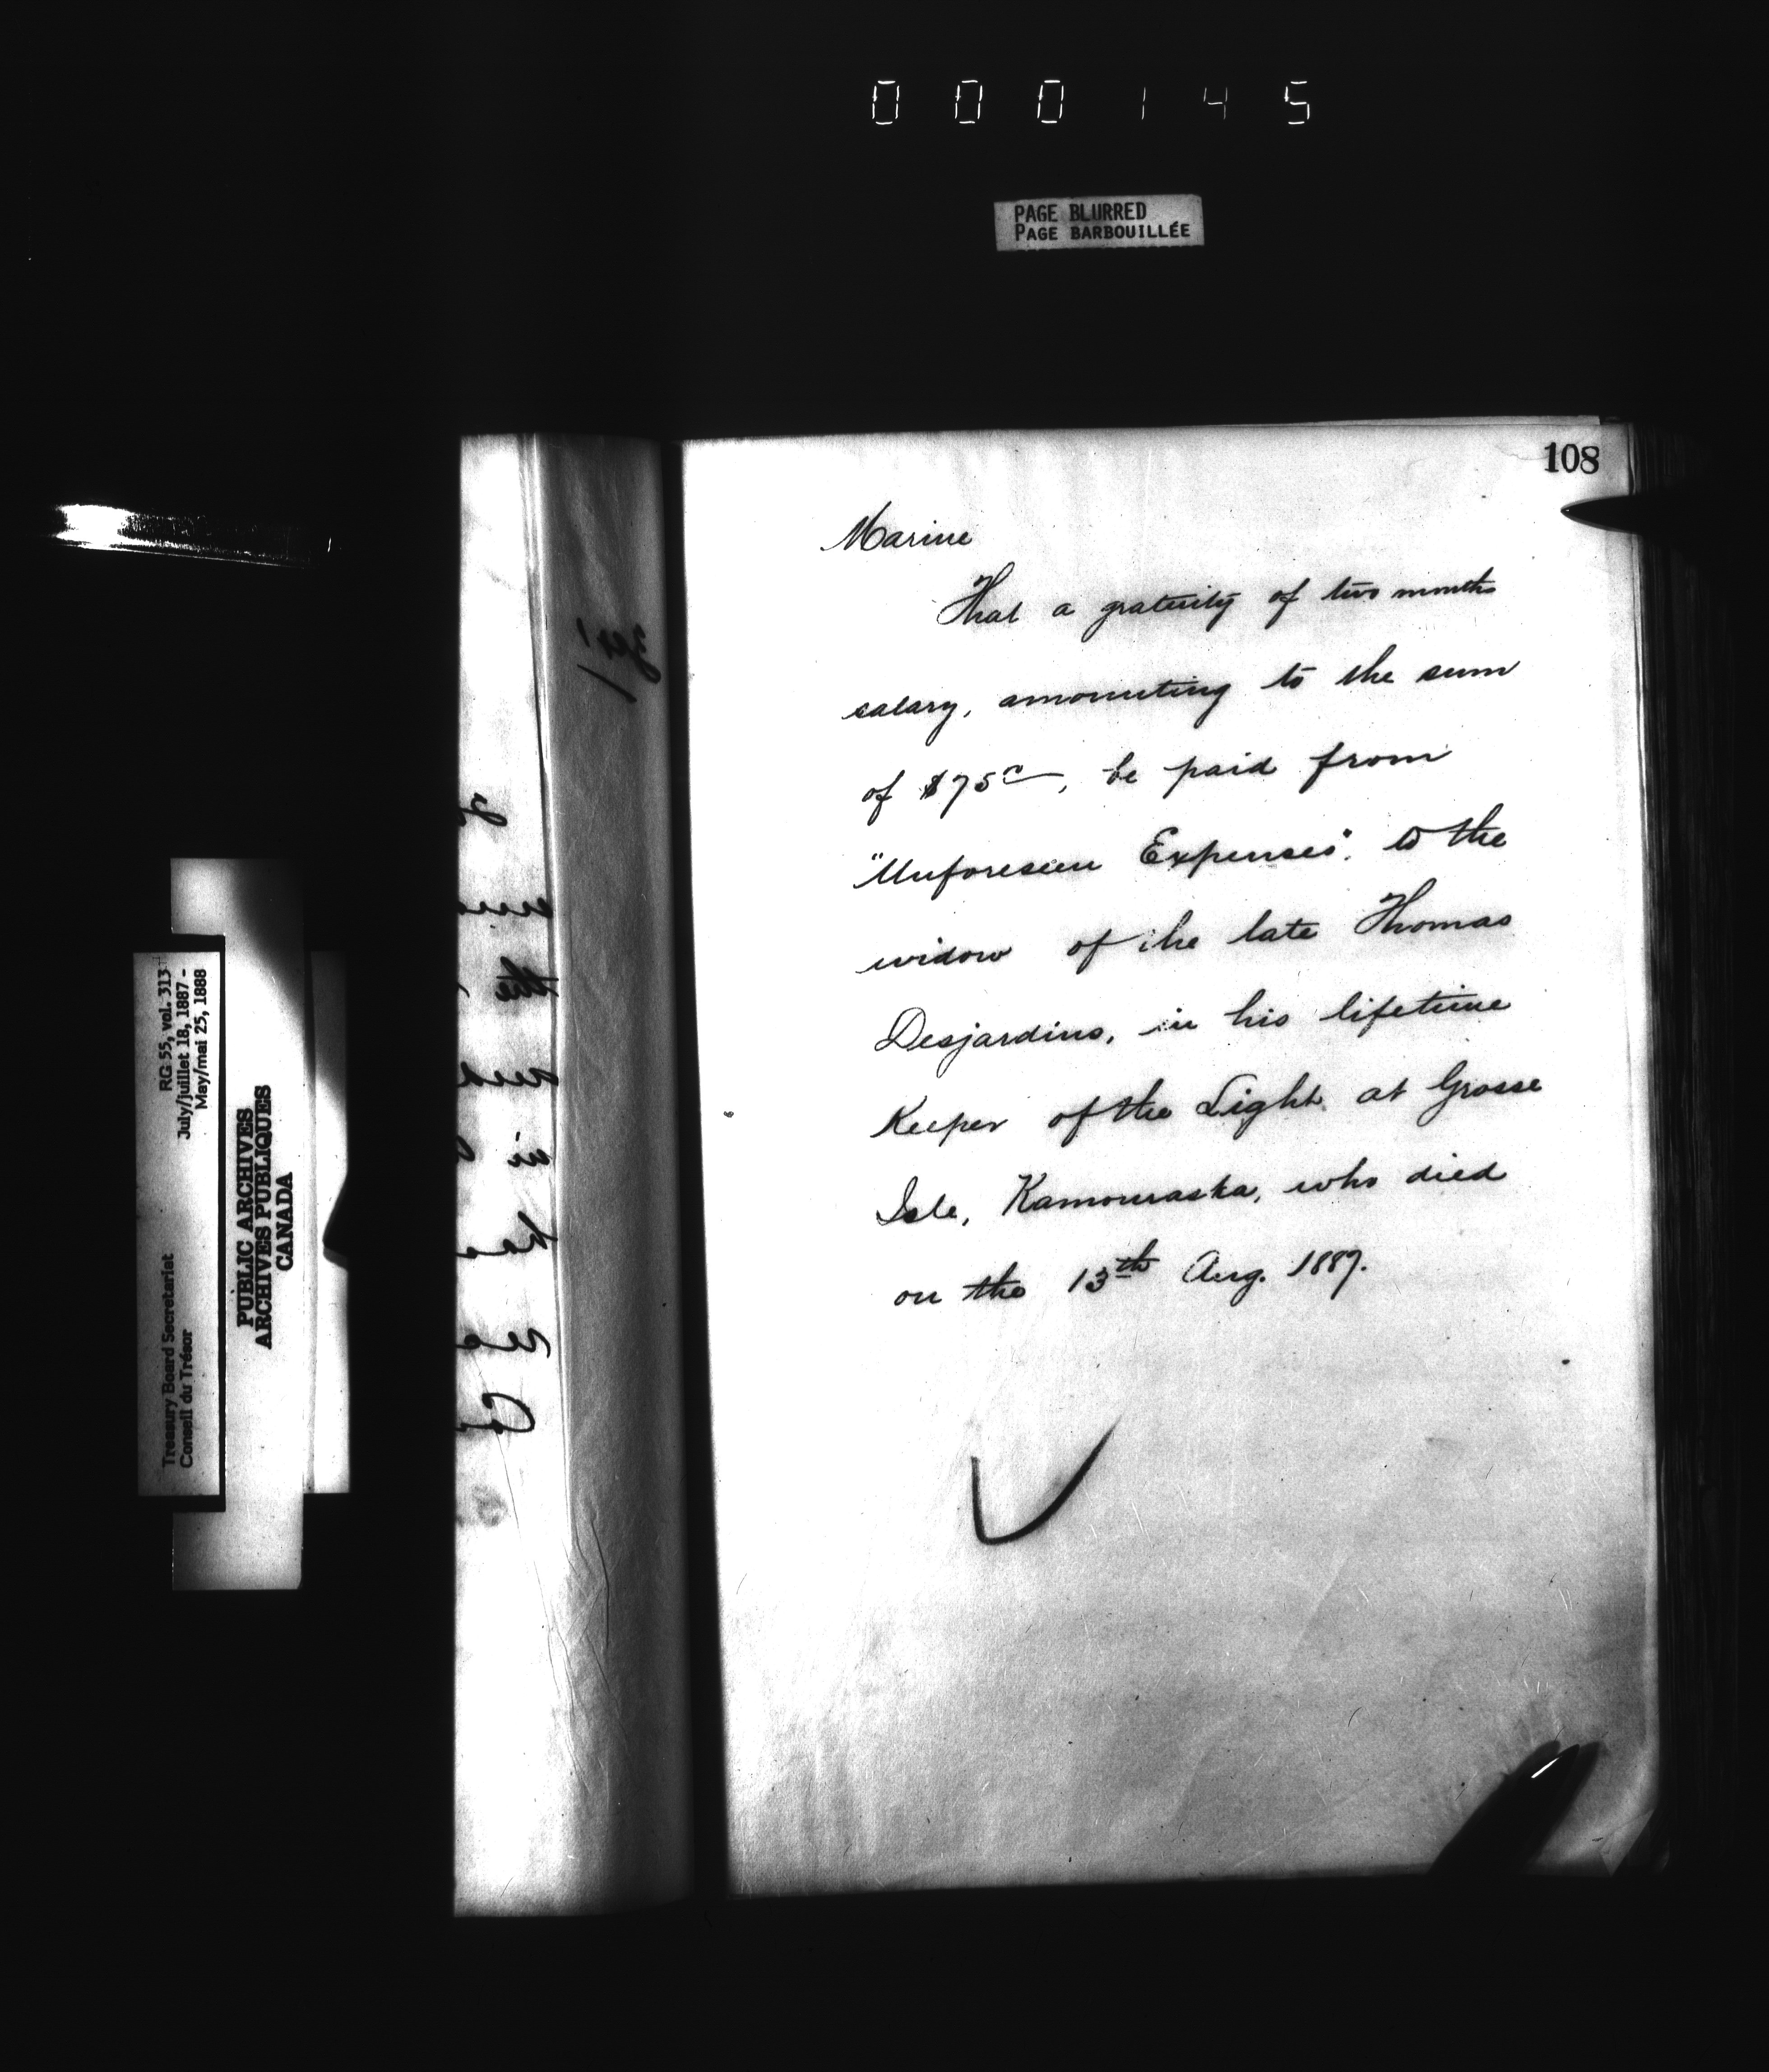 000145
PAGE BLURRED
PAGE BARBOUILLÉE
108
Marine
That a gratuity of two months
salary, amounting to the sum
of $75, be paid from
"Unforeseen Expenses". to the
widow of the late Thomas
Desjardins, in his lifetime
Keeper of the Light at Grosse
Isle, Kamouraska, who died
on the 13th Aug. 1887.
Treasury Board Secretariat
Conseil du Trésor
RG 55, vol. 313
July/juillet 18, 1887 -
May/mai 25, 1888
PUBLIC ARCHIVES
ARCHIVES PUBLIQUES
CANADA